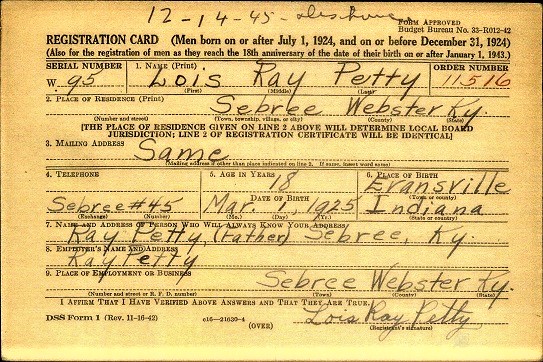 12-14-45-
FORM APPROVED
Budget Bureau No. 33-R012-42
REGISTRATION CARD (Men born on or after July 1, 1924, and on or before December 31, 1924)
(Also for the registration of men as they reach the 18th anniversary of the date of their birth on or after January 1, 1943.)
SERIAL NUMBER 1. NAME (Print) ORDER NUMBER
W. 95 Lois Ray Petty 11516
(First) (Middle) (Last)
2. PLACE OF RESIDENCE (Print)
Sebree Webster Ky.
(Number and street) (Town, township, village, or city) (County) (State)
[THE PLACE OF RESIDENCE GIVEN ON LINE 2 ABOVE WILL DETERMINE LOCAL BOARD
JURISDICTION; LINE 2 OF REGISTRATION CERTIFICATE WILL BE IDENTICAL]
3. MAILING ADDRESS
Same
[Mailing address if other than place indicated on line 2. If same, insert word same]
4. TELEPHONE 5. AGE IN YEARS 6. PLACE OF BIRTH
18 Evansville
DATE OF BIRTH (Town or county)
Sebree #45 Mar. 1, 1925 Indiana
(Exchange) (Number) (Mo.) (Day) (Yr.) (State or country)
7. NAME AND ADDRESS OF PERSON WHO WILL ALWAYS KNOW YOUR ADDRESS
Ray Petty, (Father) Sebree, Ky.
8. EMPLOYER'S NAME AND ADDRESS
Ray Petty
9. PLACE OF EMPLOYMENT OR BUSINESS
Sebree Webster Ky.
(Number and street or R. F. D. number) (Town) (County) (State)
I AFFIRM THAT I HAVE VERIFIED ABOVE ANSWERS AND THAT THEY ARE TRUE.
Lois Ray Petty
DSS Form 1 (Rev. 11-16-42) c16-21630-4 (Registrant's signature)
(OVER)